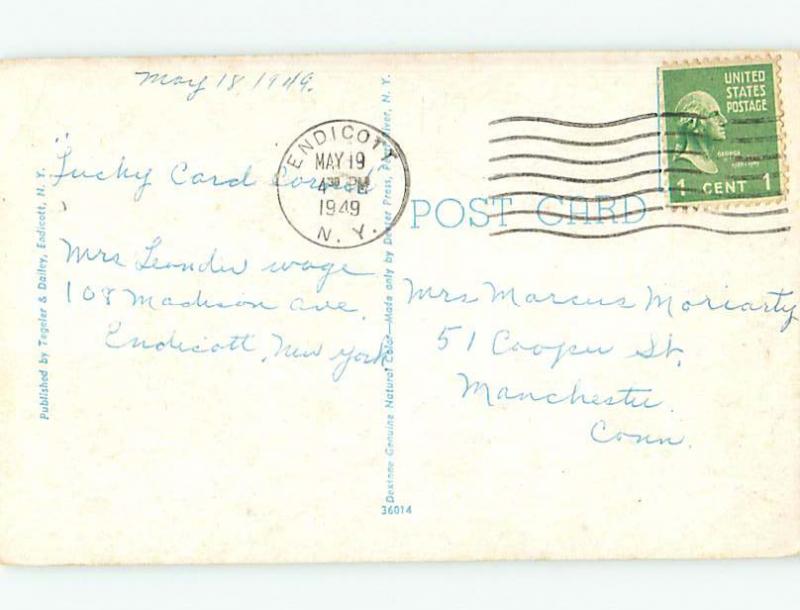 May 18, 1949.
"Lucky Card
Mrs Leander Wage
108 Madison Ave.
Endicott, New York
ENDICOTT
MAY 19
4 30 PM
1949
N. Y.
UNITED
STATES
POSTAGE
GEORGE
1 CENT 1
POST CARD
Mrs Marcus Moriarty
51 Cooper St.
Manchester.
Conn.
Published by Tegeler & Dailey, Endicott, N. Y.
Dextone Genuine Natural Color—Made only by Dexter Press, River, N. Y.
36014